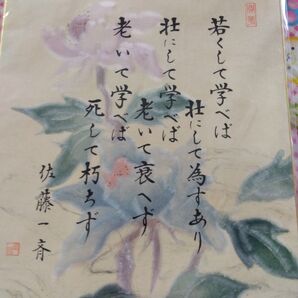 若くして学べば
壮にして為すあり
壮にして学べば
老いて衰へず
老いて学べば
死して朽ちず
佐藤一斉